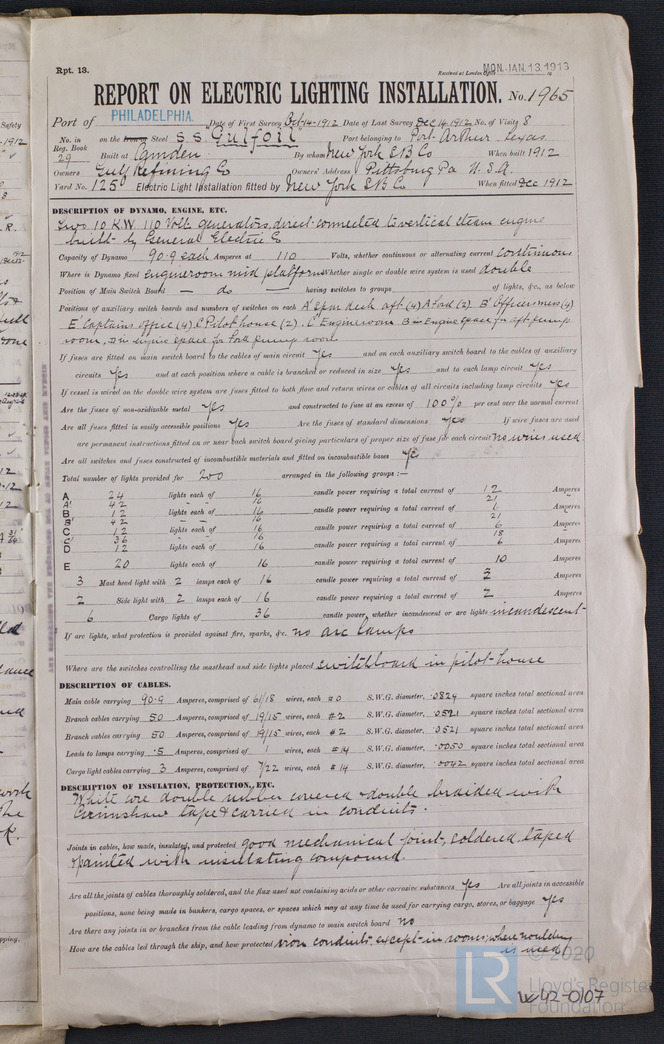 Rpt. 13.
Received at London Office MON. JAN. 13. 1913
REPORT ON ELECTRIC LIGHTING INSTALLATION. No. 1965
Port of PHILADELPHIA. Date of First Survey Oct 14-1912 Date of Last Survey Dec 14 1912 No. of Visits 8
No. in Reg. Book 29 on the Iron or Steel S.S. Gulfoil Port belonging to Port Arthur Texas
Built at Camden By whom New York S.B. Co When built 1912
Owners Gulf Refining Co Owners' Address Pittsburg Pa U.S.A.
Yard No. 125 Electric Light Installation fitted by New York S.B. Co When fitted Dec 1912
DESCRIPTION OF DYNAMO, ENGINE, ETC.
Two 10 K.W 110 Volt generators, direct-connected to vertical steam engine
built by General Electric Co
Capacity of Dynamo 90.9 each Amperes at 110 Volts, whether continuous or alternating current continuous
Where is Dynamo fixed Engineroom mid platform Whether single or double wire system is used double
Position of Main Switch Board — do — having switches to groups of lights, &c., as below
Positions of auxiliary switch boards and numbers of switches on each A' upr deck aft (4) A Fore (2) B' Officers mess (4)
E' Captains office (4) C Pilot house (2). C' Engineroom B in Engine space for aft pump
room, D in engine space for Fore pump room
If fuses are fitted on main switch board to the cables of main circuit yes and on each auxiliary switch board to the cables of auxiliary
circuits yes and at each position where a cable is branched or reduced in size yes and to each lamp circuit yes
If vessel is wired on the double wire system are fuses fitted to both flow and return wires or cables of all circuits including lamp circuits yes
Are the fuses of non-oxidizable metal yes and constructed to fuse at an excess of 100% per cent over the normal current
Are all fuses fitted in easily accessible positions yes Are the fuses of standard dimensions yes If wire fuses are used
are permanent instructions fitted on or near each switch board giving particulars of proper size of fuse for each circuit no wires used
Are all switches and fuses constructed of incombustible materials and fitted on incombustible bases yes
Total number of lights provided for 200 arranged in the following groups :—
A 24 lights each of 16 candle power requiring a total current of 12 Amperes
A' 42 16 21
B 12 lights each of 16 candle power requiring a total current of 6 Amperes
B' 42 16 21
C 12 lights each of 16 candle power requiring a total current of 6 Amperes
C' 36 16 18
D 12 lights each of 16 candle power requiring a total current of 6 Amperes
E 20 lights each of 16 candle power requiring a total current of 10 Amperes
3 Mast head light with 2 lamps each of 16 candle power requiring a total current of 3 Amperes
2 Side light with 2 lamps each of 16 candle power requiring a total current of 2 Amperes
6 Cargo lights of 36 candle power, whether incandescent or arc lights incandescent
If arc lights, what protection is provided against fire, sparks, &c. no arc lamps
Where are the switches controlling the masthead and side lights placed switchboard in pilot-house
DESCRIPTION OF CABLES.
Main cable carrying 90.9 Amperes, comprised of 61/18 wires, each #0 S.W.G. diameter, .0824 square inches total sectional area
Branch cables carrying 50 Amperes, comprised of 19/15 wires, each #2 S.W.G. diameter, .0521 square inches total sectional area
Branch cables carrying 50 Amperes, comprised of 19/15 wires, each #2 S.W.G. diameter, .0521 square inches total sectional area
Leads to lamps carrying .5 Amperes, comprised of 1 wires, each #14 S.W.G. diameter, .0050 square inches total sectional area
Cargo light cables carrying 3 Amperes, comprised of 7/22 wires, each #14 S.W.G. diameter, .0042 square inches total sectional area
DESCRIPTION OF INSULATION, PROTECTION, ETC.
White core double rubber covered & double braided with
Grimshaw tape & carried in conduits.
Joints in cables, how made, insulated, and protected good mechanical joint, soldered, taped
& painted with insulating compound.
Are all the joints of cables thoroughly soldered, and the flux used not containing acids or other corrosive substances yes Are all joints in accessible
positions, none being made in bunkers, cargo spaces, or spaces which may at any time be used for carrying cargo, stores, or baggage yes
Are there any joints in or branches from the cable leading from dynamo to main switch board no
How are the cables led through the ship, and how protected iron conduits except in rooms, where moulding
is used
© 2020
LR Lloyd's Register
Foundation
W42-0107